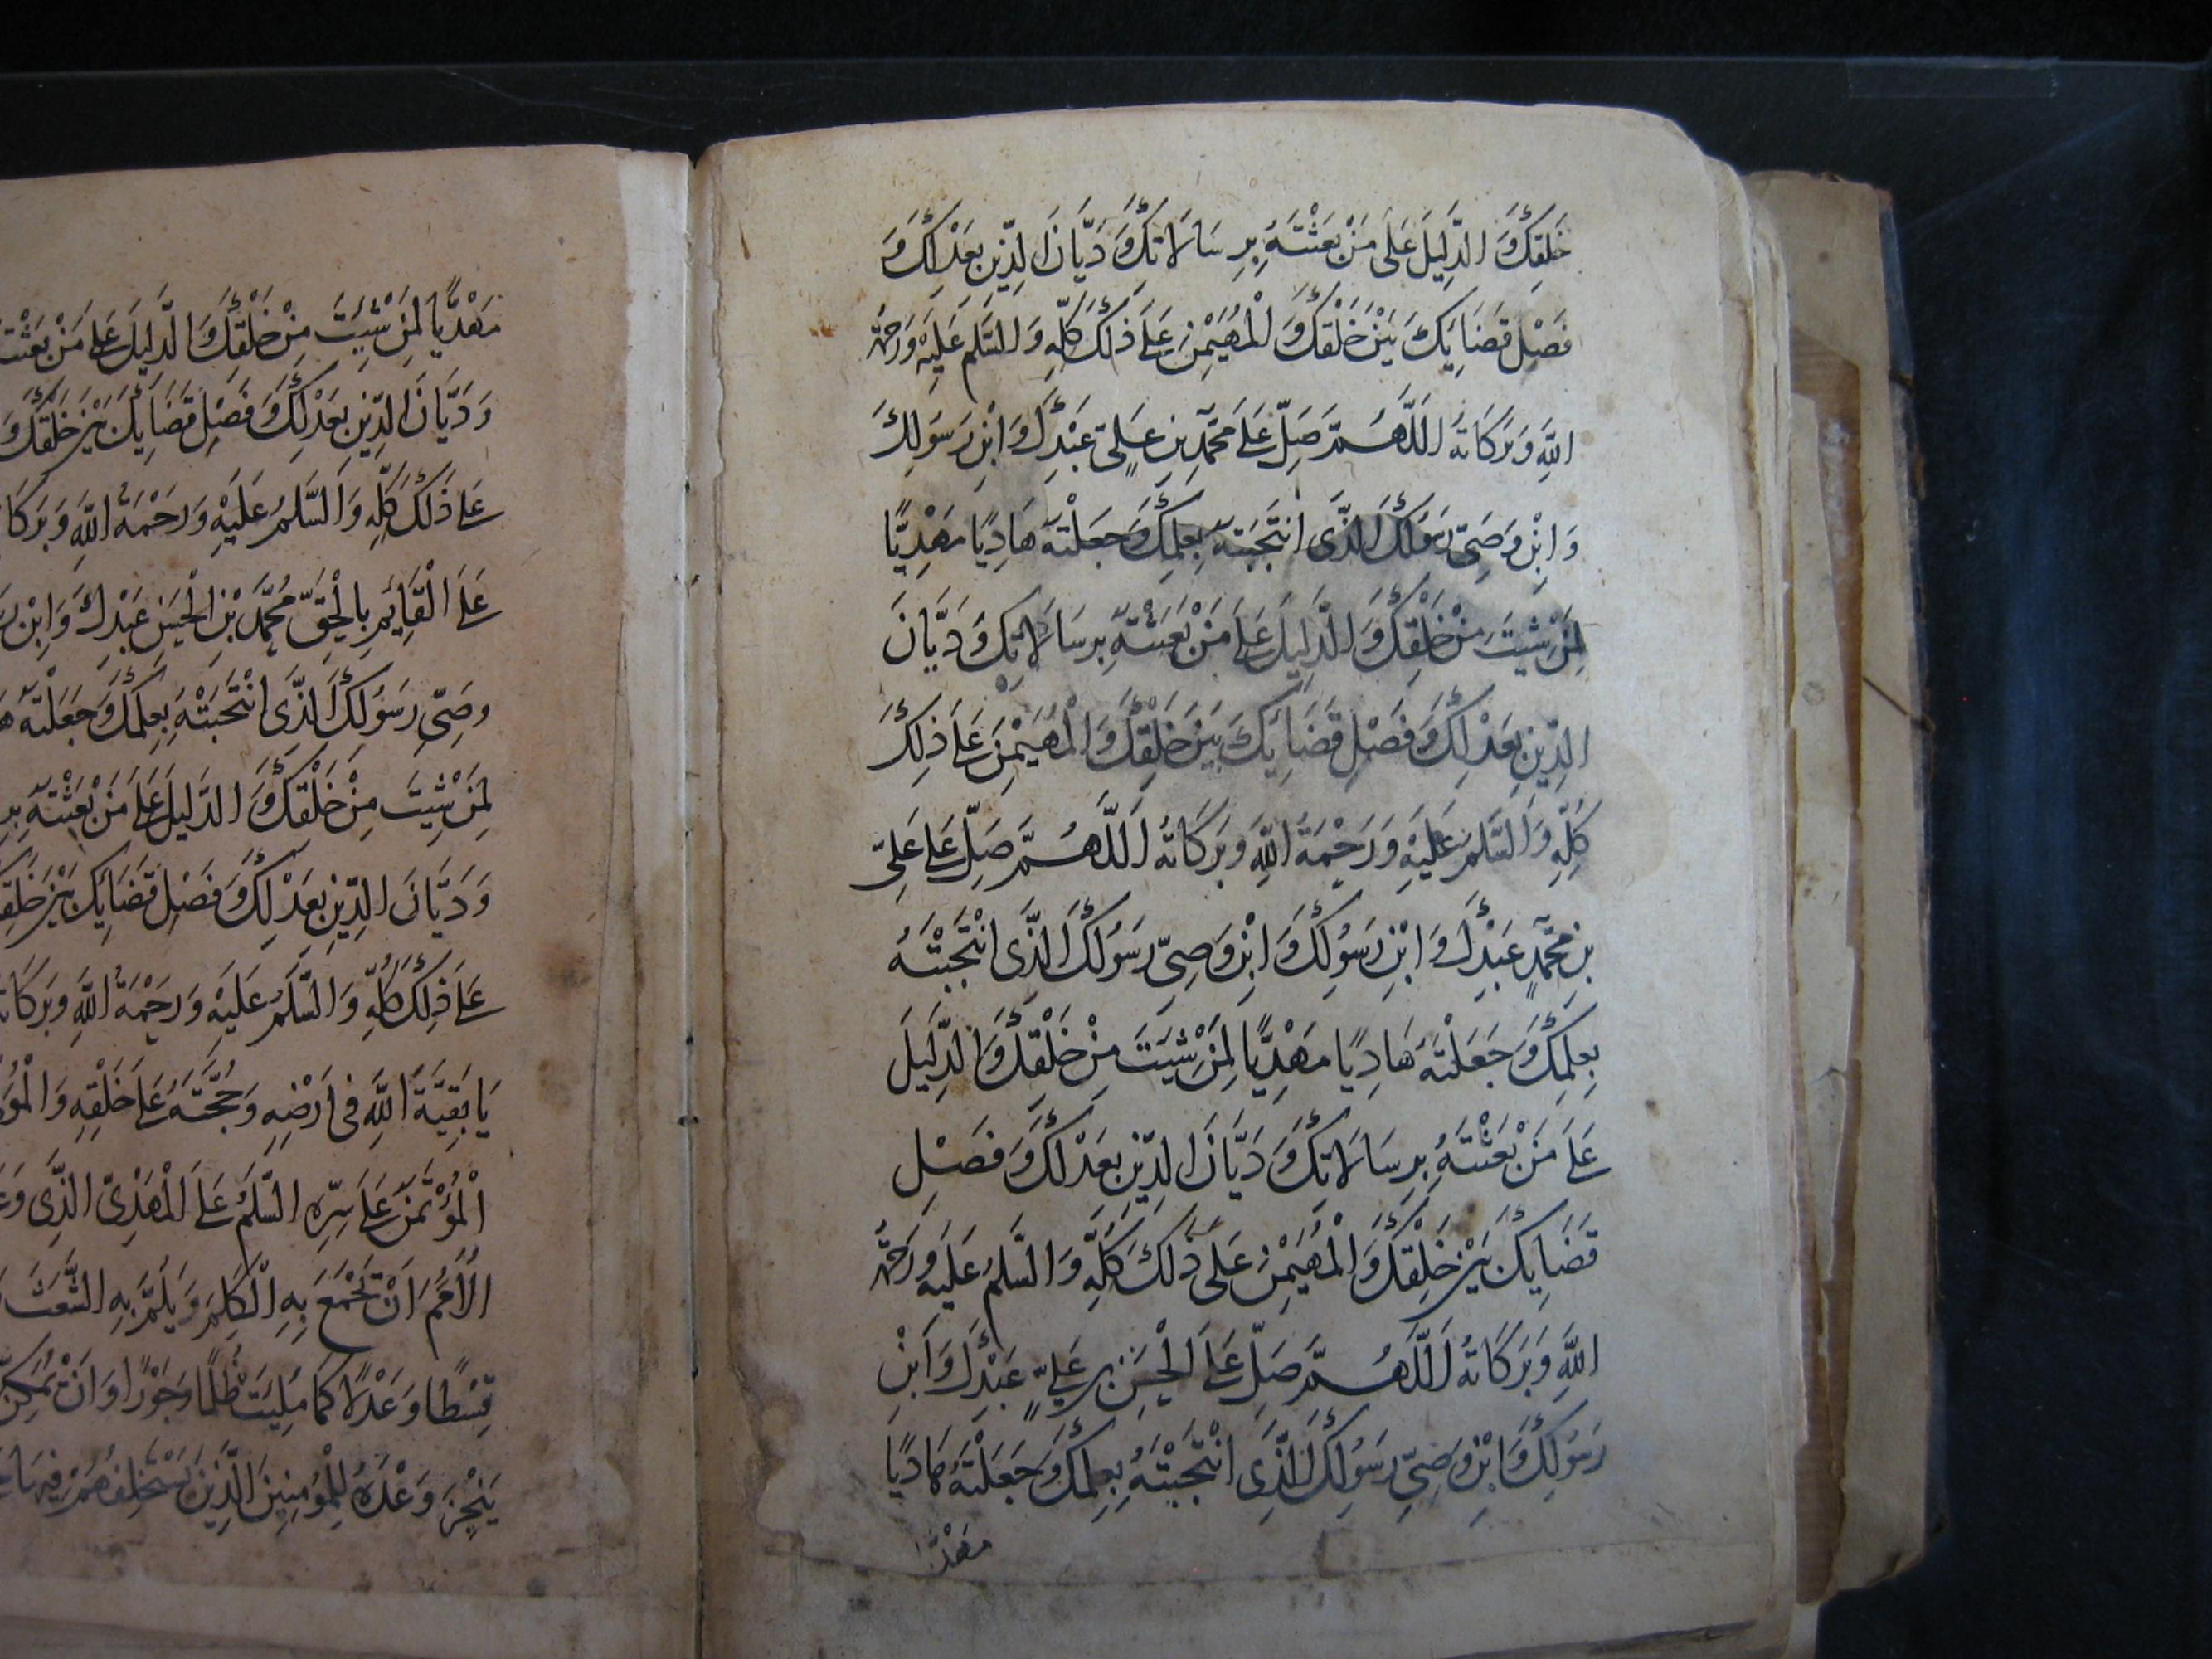 خَلْقِكَ وَالدَّلِيلَ عَلَى مَنْ بَعَثْتَهُ بِرِسَالَاتِكَ وَدَيَّانَ الدِّينِ بِعَدْلِكَ وَ
فَصْلِ قَضَايِكَ بَيْنَ خَلْقِكَ وَالْمُهَيْمِنَ عَلَى ذَلِكَ كُلِّهِ وَالسَّلَمُ عَلَيْهِ وَرَحْمَةُ
اللَّهِ وَبَرَكَاتُهُ اَللَّهُمَّ صَلِّ عَلَى مُحَمَّدِ بْنِ عَلِيٍّ عَبْدِكَ وَابْنِ رَسُولِكَ
وَابْنِ وَصِيِّ رَسُولِكَ الَّذِي انْتَجَبْتَهُ بِعِلْمِكَ وَجَعَلْتَهُ هَادِيًا مَهْدِيًّا
لِمَنْ شِيتَ مِنْ خَلْقِكَ وَالدَّلِيلَ عَلَى مَنْ بَعَثْتَهُ بِرِسَالَاتِكَ وَدَيَّانَ
الدِّينِ بِعَدْلِكَ وَفَصْلِ قَضَايِكَ بَيْنَ خَلْقِكَ وَالْمُهَيْمِنَ عَلَى ذَلِكَ
كُلِّهِ وَالسَّلَمُ عَلَيْهِ وَرَحْمَةُ اللَّهِ وَبَرَكَاتُهُ اَللَّهُمَّ صَلِّ عَلَى عَلِيِّ
بْنِ مُحَمَّدٍ عَبْدِكَ وَابْنِ رَسُولِكَ وَابْنِ وَصِيِّ رَسُولِكَ الَّذِي انْتَجَبْتَهُ
بِعِلْمِكَ وَجَعَلْتَهُ هَادِيًا مَهْدِيًّا لِمَنْ شِيتَ مِنْ خَلْقِكَ وَالدَّلِيلَ
عَلَى مَنْ بَعَثْتَهُ بِرِسَالَاتِكَ وَدَيَّانَ الدِّينِ بِعَدْلِكَ وَفَصْلِ
قَضَايِكَ بَيْنَ خَلْقِكَ وَالْمُهَيْمِنَ عَلَى ذَلِكَ كُلِّهِ وَالسَّلَمُ عَلَيْهِ وَرَحْمَةُ
اللَّهِ وَبَرَكَاتُهُ اَللَّهُمَّ صَلِّ عَلَى الْحَسَنِ بْنِ عَلِيٍّ عَبْدِكَ وَابْنِ
رَسُولِكَ وَابْنِ وَصِيِّ رَسُولِكَ الَّذِي انْتَجَبْتَهُ بِعِلْمِكَ وَجَعَلْتَهُ هَادِيًا
مَهْدِيًّا
مَهْدِيًّا لِمَنْ شِيتَ مِنْ خَلْقِكَ وَالدَّلِيلَ عَلَى مَنْ
وَدَيَّانَ الدِّينِ بِعَدْلِكَ وَفَصْلِ قَضَايِكَ بَيْنَ خَلْقِكَ وَ
عَلَى ذَلِكَ كُلِّهِ وَالسَّلَمُ عَلَيْهِ وَرَحْمَةُ اللَّهِ
عَلَى الْقَايِمِ بِالْحَقِّ مُحَمَّدِ بْنِ الْحَسَنِ عَبْدِكَ وَابْنِ
وَصِيِّ رَسُولِكَ الَّذِي انْتَجَبْتَهُ بِعِلْمِكَ وَجَعَلْتَهُ
لِمَنْ شِيتَ مِنْ خَلْقِكَ وَالدَّلِيلَ عَلَى مَنْ بَعَثْتَهُ
وَدَيَّانَ الدِّينِ بِعَدْلِكَ وَفَصْلِ قَضَايِكَ بَيْنَ
عَلَى ذَلِكَ كُلِّهِ وَالسَّلَمُ عَلَيْهِ وَرَحْمَةُ اللَّهِ
يَا بَقِيَّةَ اللَّهِ فِي اَرْضِهِ وَحُجَّتَهُ عَلَى خَلْقِهِ
الْمُؤْتَمَنَ عَلَى سِرِّهِ السَّلَمُ عَلَى الْمَهْدِيِّ الَّذِي
الْاُمَمَ اَنْ تَجْمَعَ بِهِ الْكَلِمَ وَيَلُمَّ بِهِ الشَّعَثَ
قِسْطًا وَعَدْلًا كَمَا مُلِيَتْ ظُلْمًا وَجَوْرًا وَاَنْ
يُنْجِزَ وَعْدَهُ لِلْمُؤْمِنِينَ الَّذِينَ